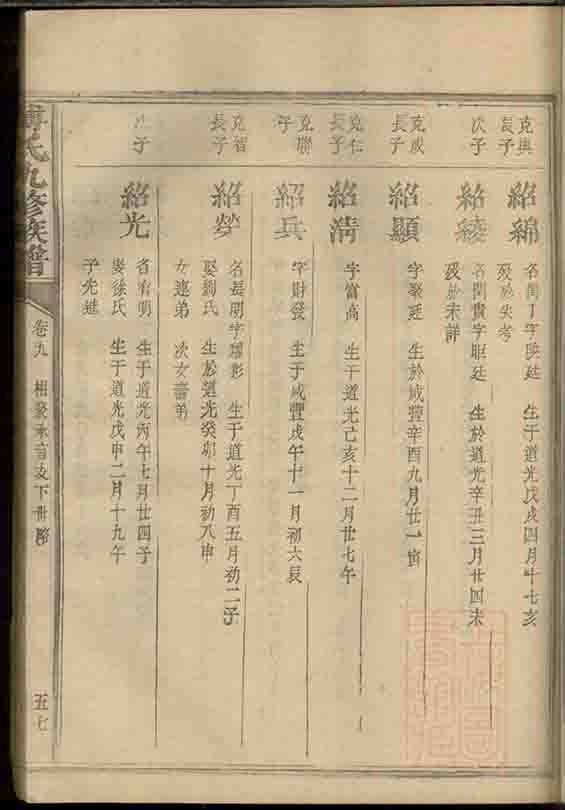 克興長子
紹綿
名閏丁字映廷 生于道光戊戌四月十七亥
歿於失考
次子
紹綾
名閏貴字耻廷 生於道光辛丑三月廿四未
歿於未詳
克成長子
紹顯
字聚廷 生於咸豐辛酉九月廿一寅
克仁長子
紹清
字富高 生于道光己亥十二月廿七午
克聯子
紹兵
字財發 生于咸豐戊午十一月初六辰
克智長子
紹勞
名長明字耀彩 生于道光丁酉五月初二子
娶劉氏 生於道光癸卯十月初八申
女連弟 次女喜弟
次子
紹光
名有明 生于道光丙午七月廿四子
娶徐氏 生于道光戊申二月十九午
子先
氏九修族譜
卷九 相 承言支下世
五七